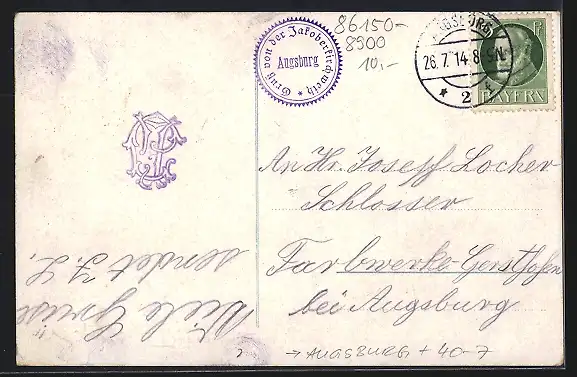 Gruß von der Jakoberkirchweih
Augsburg
86150-
8900
10,-
AUGSBURG
26.7.14.8-9N.
* 2 *
BAYERN
An Hr. Joseff Locher
Schlosser
Farbwerke-Gersthofen
bei Augsburg
Viele Grüße
sendet J. L.
→ AUGSBURG + 40-7